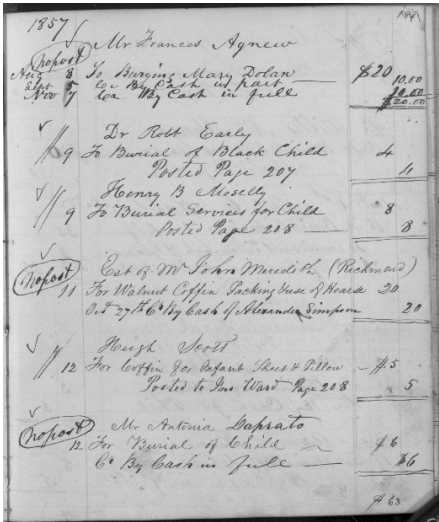 1857
Mr Frances Agnew
nopost
Aug 8 To Burying Mary Dolan $20
Sept 5 Cr By Cash in part 10.00
Nov 7 Cr By Cash in full 10.00
$20.00
Dr Robt Early
" 9 To Burial of Black Child 4
Posted Page 207 4
Henry B Moselly
" 9 To Burial Services for Child 8
Posted Page 208 8
Est of Mr John Meredith (Richmond)
nopost
11 For Walnut Coffin Packing &use of Hearse 20
Oct 27th Cr By Cash of Alexander Simpson 20
Hugh Scott
" 12 For Coffin for Infant Sheet & Pillow $5
Posted to Jms Ward Page 208 5
Mr Antonia Daprato
nopost
12 For Burial of Child $6
Cr By Cash in full $6
$63